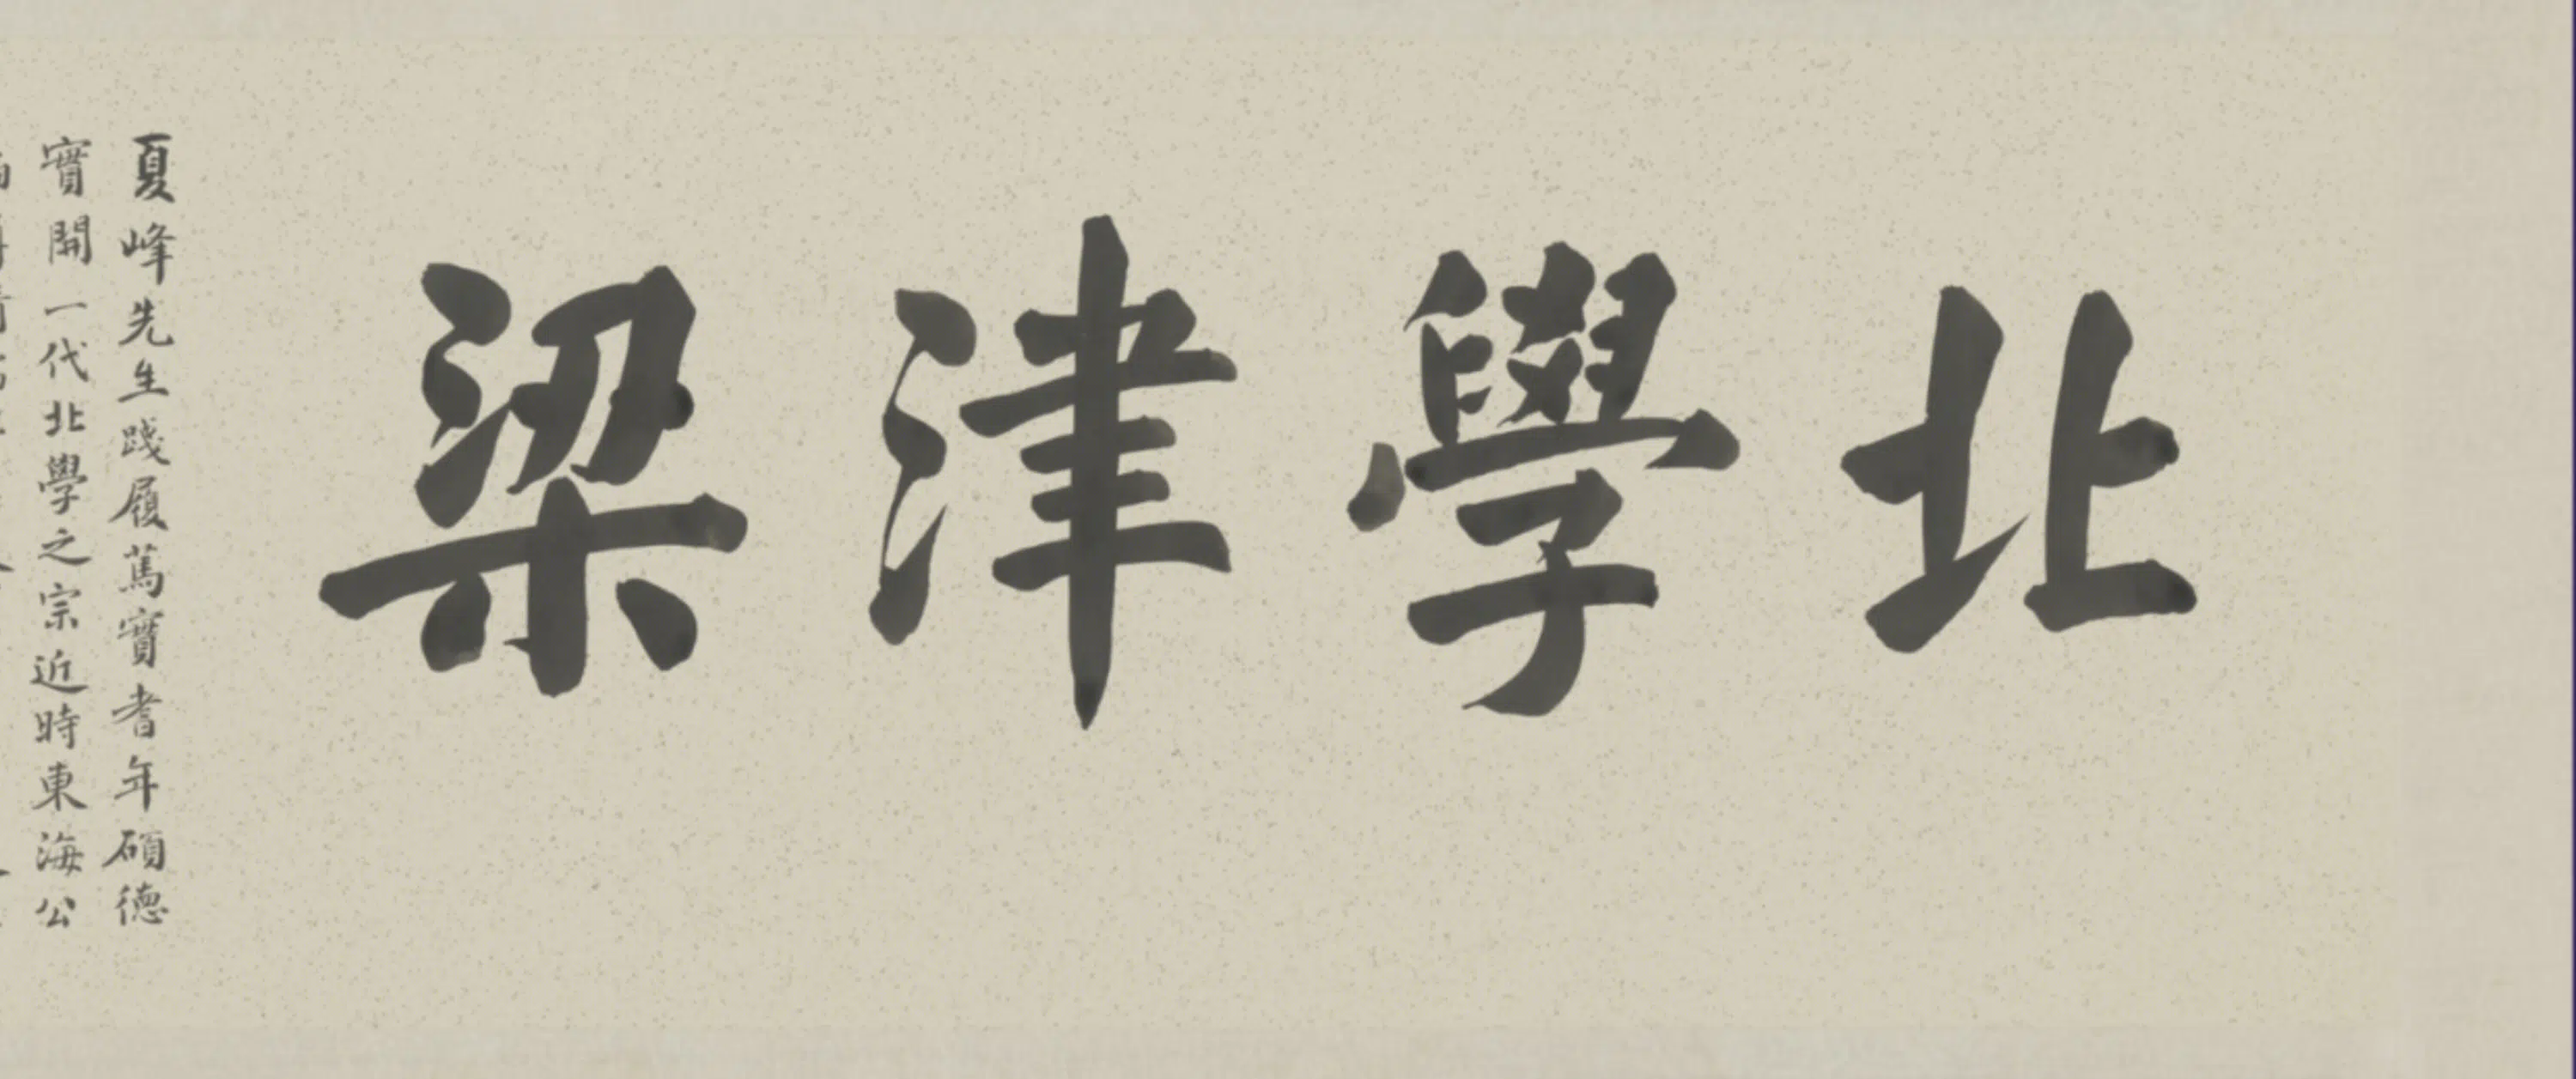 北學津梁
夏峰先生踐履篤實耆年碩德
實開一代北學之宗近時東海公